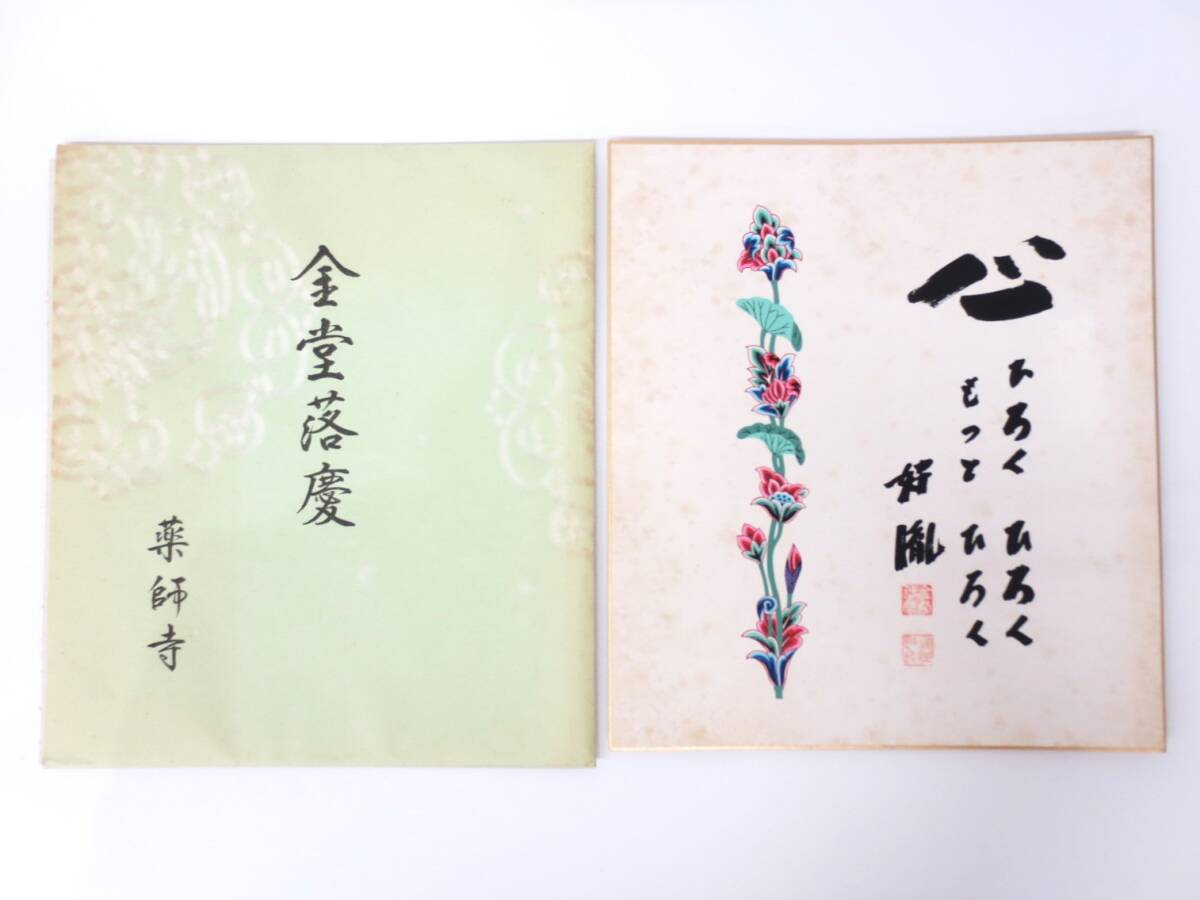 金堂落慶
薬師寺
心
ひろく ひろく
もっと ひろく
好胤